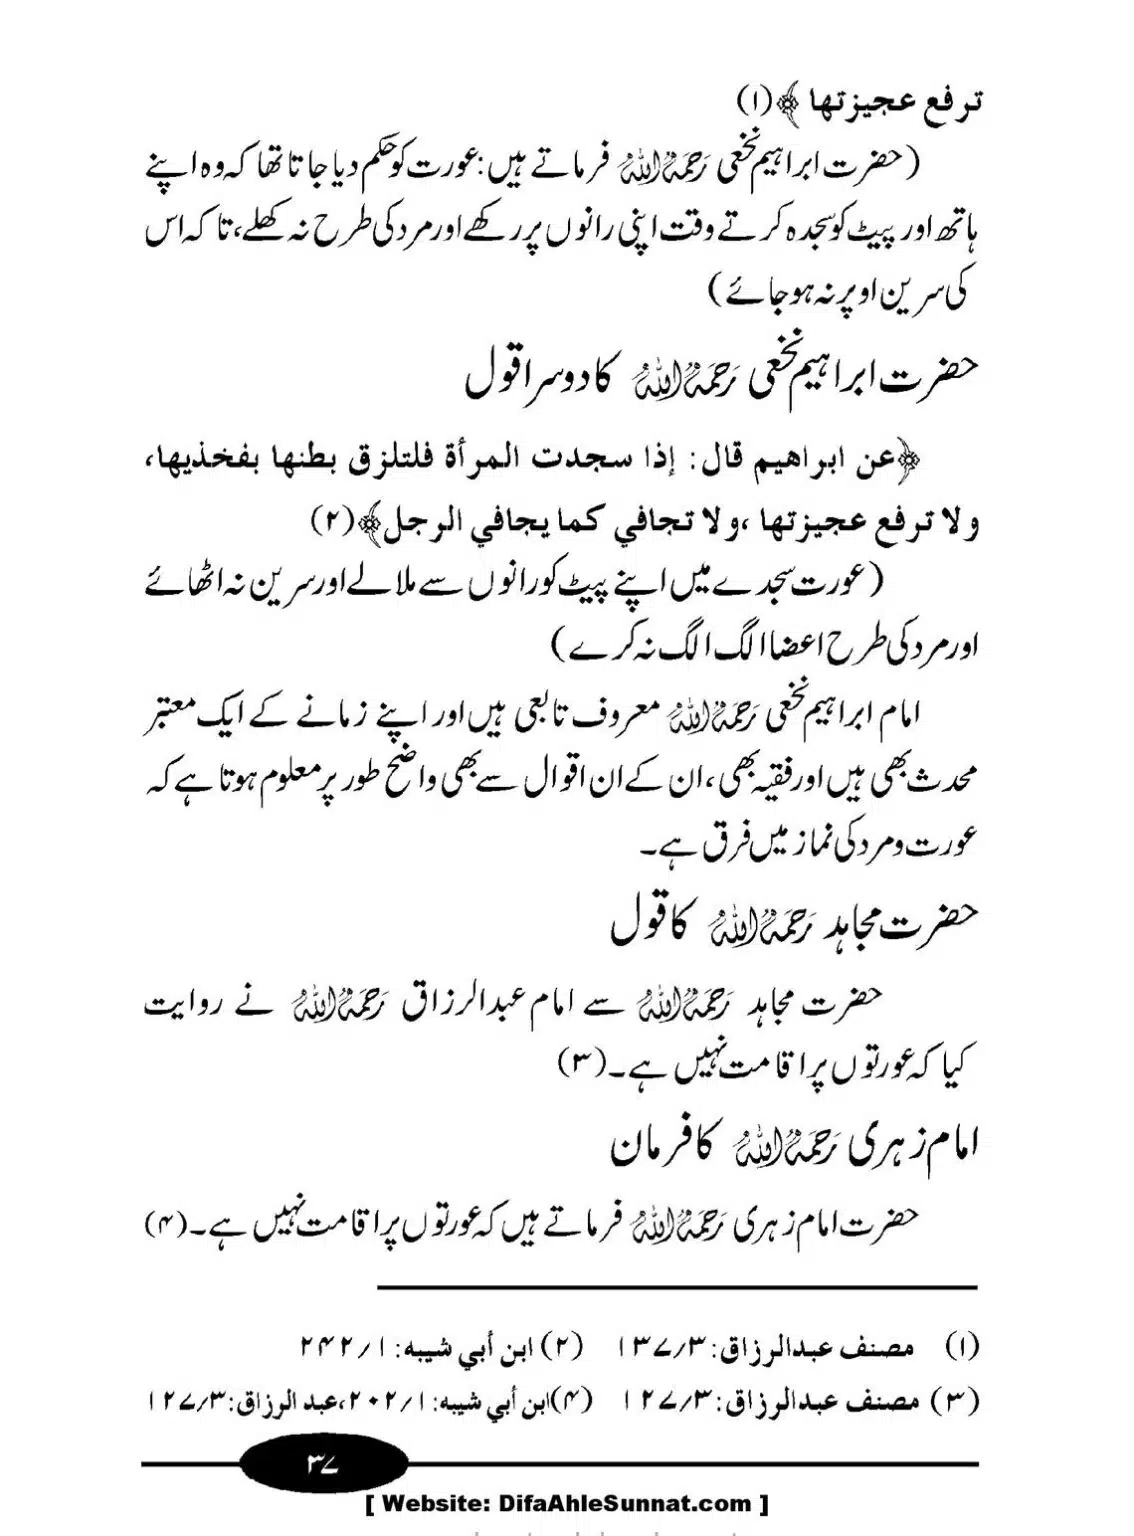 ترفع عجيزتها ﴾(۱)
(حضرت ابراہیم نخعی رَحِمَہُ اللّٰہُ فرماتے ہیں: عورت کو حکم دیا جاتا تھا کہ وہ اپنے
ہاتھ اور پیٹ کو سجدہ کرتے وقت اپنی رانوں پر رکھے اور مرد کی طرح نہ کھلے، تاکہ اس
کی سرین اوپر نہ ہو جائے)
حضرت ابراہیم نخعی رَحِمَہُ اللّٰہُ کا دوسرا قول
﴿عن ابراهيم قال: إذا سجدت المرأة فلتلزق بطنها بفخذيها،
ولا ترفع عجيزتها ،ولا تجافي كما يجافي الرجل﴾(۲)
(عورت سجدے میں اپنے پیٹ کو رانوں سے ملا لے اور سرین نہ اٹھائے
اور مرد کی طرح اعضا الگ الگ نہ کرے)
امام ابراہیم نخعی رَحِمَہُ اللّٰہُ معروف تابعی ہیں اور اپنے زمانے کے ایک معتبر
محدث بھی ہیں اور فقیہ بھی، ان کے ان اقوال سے بھی واضح طور پر معلوم ہوتا ہے کہ
عورت و مرد کی نماز میں فرق ہے۔
حضرت مجاہد رَحِمَہُ اللّٰہُ کا قول
حضرت مجاہد رَحِمَہُ اللّٰہُ سے امام عبدالرزاق رَحِمَہُ اللّٰہُ نے روایت
کیا کہ عورتوں پر اقامت نہیں ہے۔(۳)
امام زہری رَحِمَہُ اللّٰہُ کا فرمان
حضرت امام زہری رَحِمَہُ اللّٰہُ فرماتے ہیں کہ عورتوں پر اقامت نہیں ہے۔(۴)
(۱) مصنف عبدالرزاق: ۳/۱۳۷ (۲) ابن أبي شيبه: ۱/۲۴۲
(۳) مصنف عبدالرزاق: ۳/۱۲۷ (۴) ابن أبي شيبه: ۱/۲۰۲، عبد الرزاق: ۳/۱۲۷
۳۷
[ Website: DifaAhleSunnat.com ]